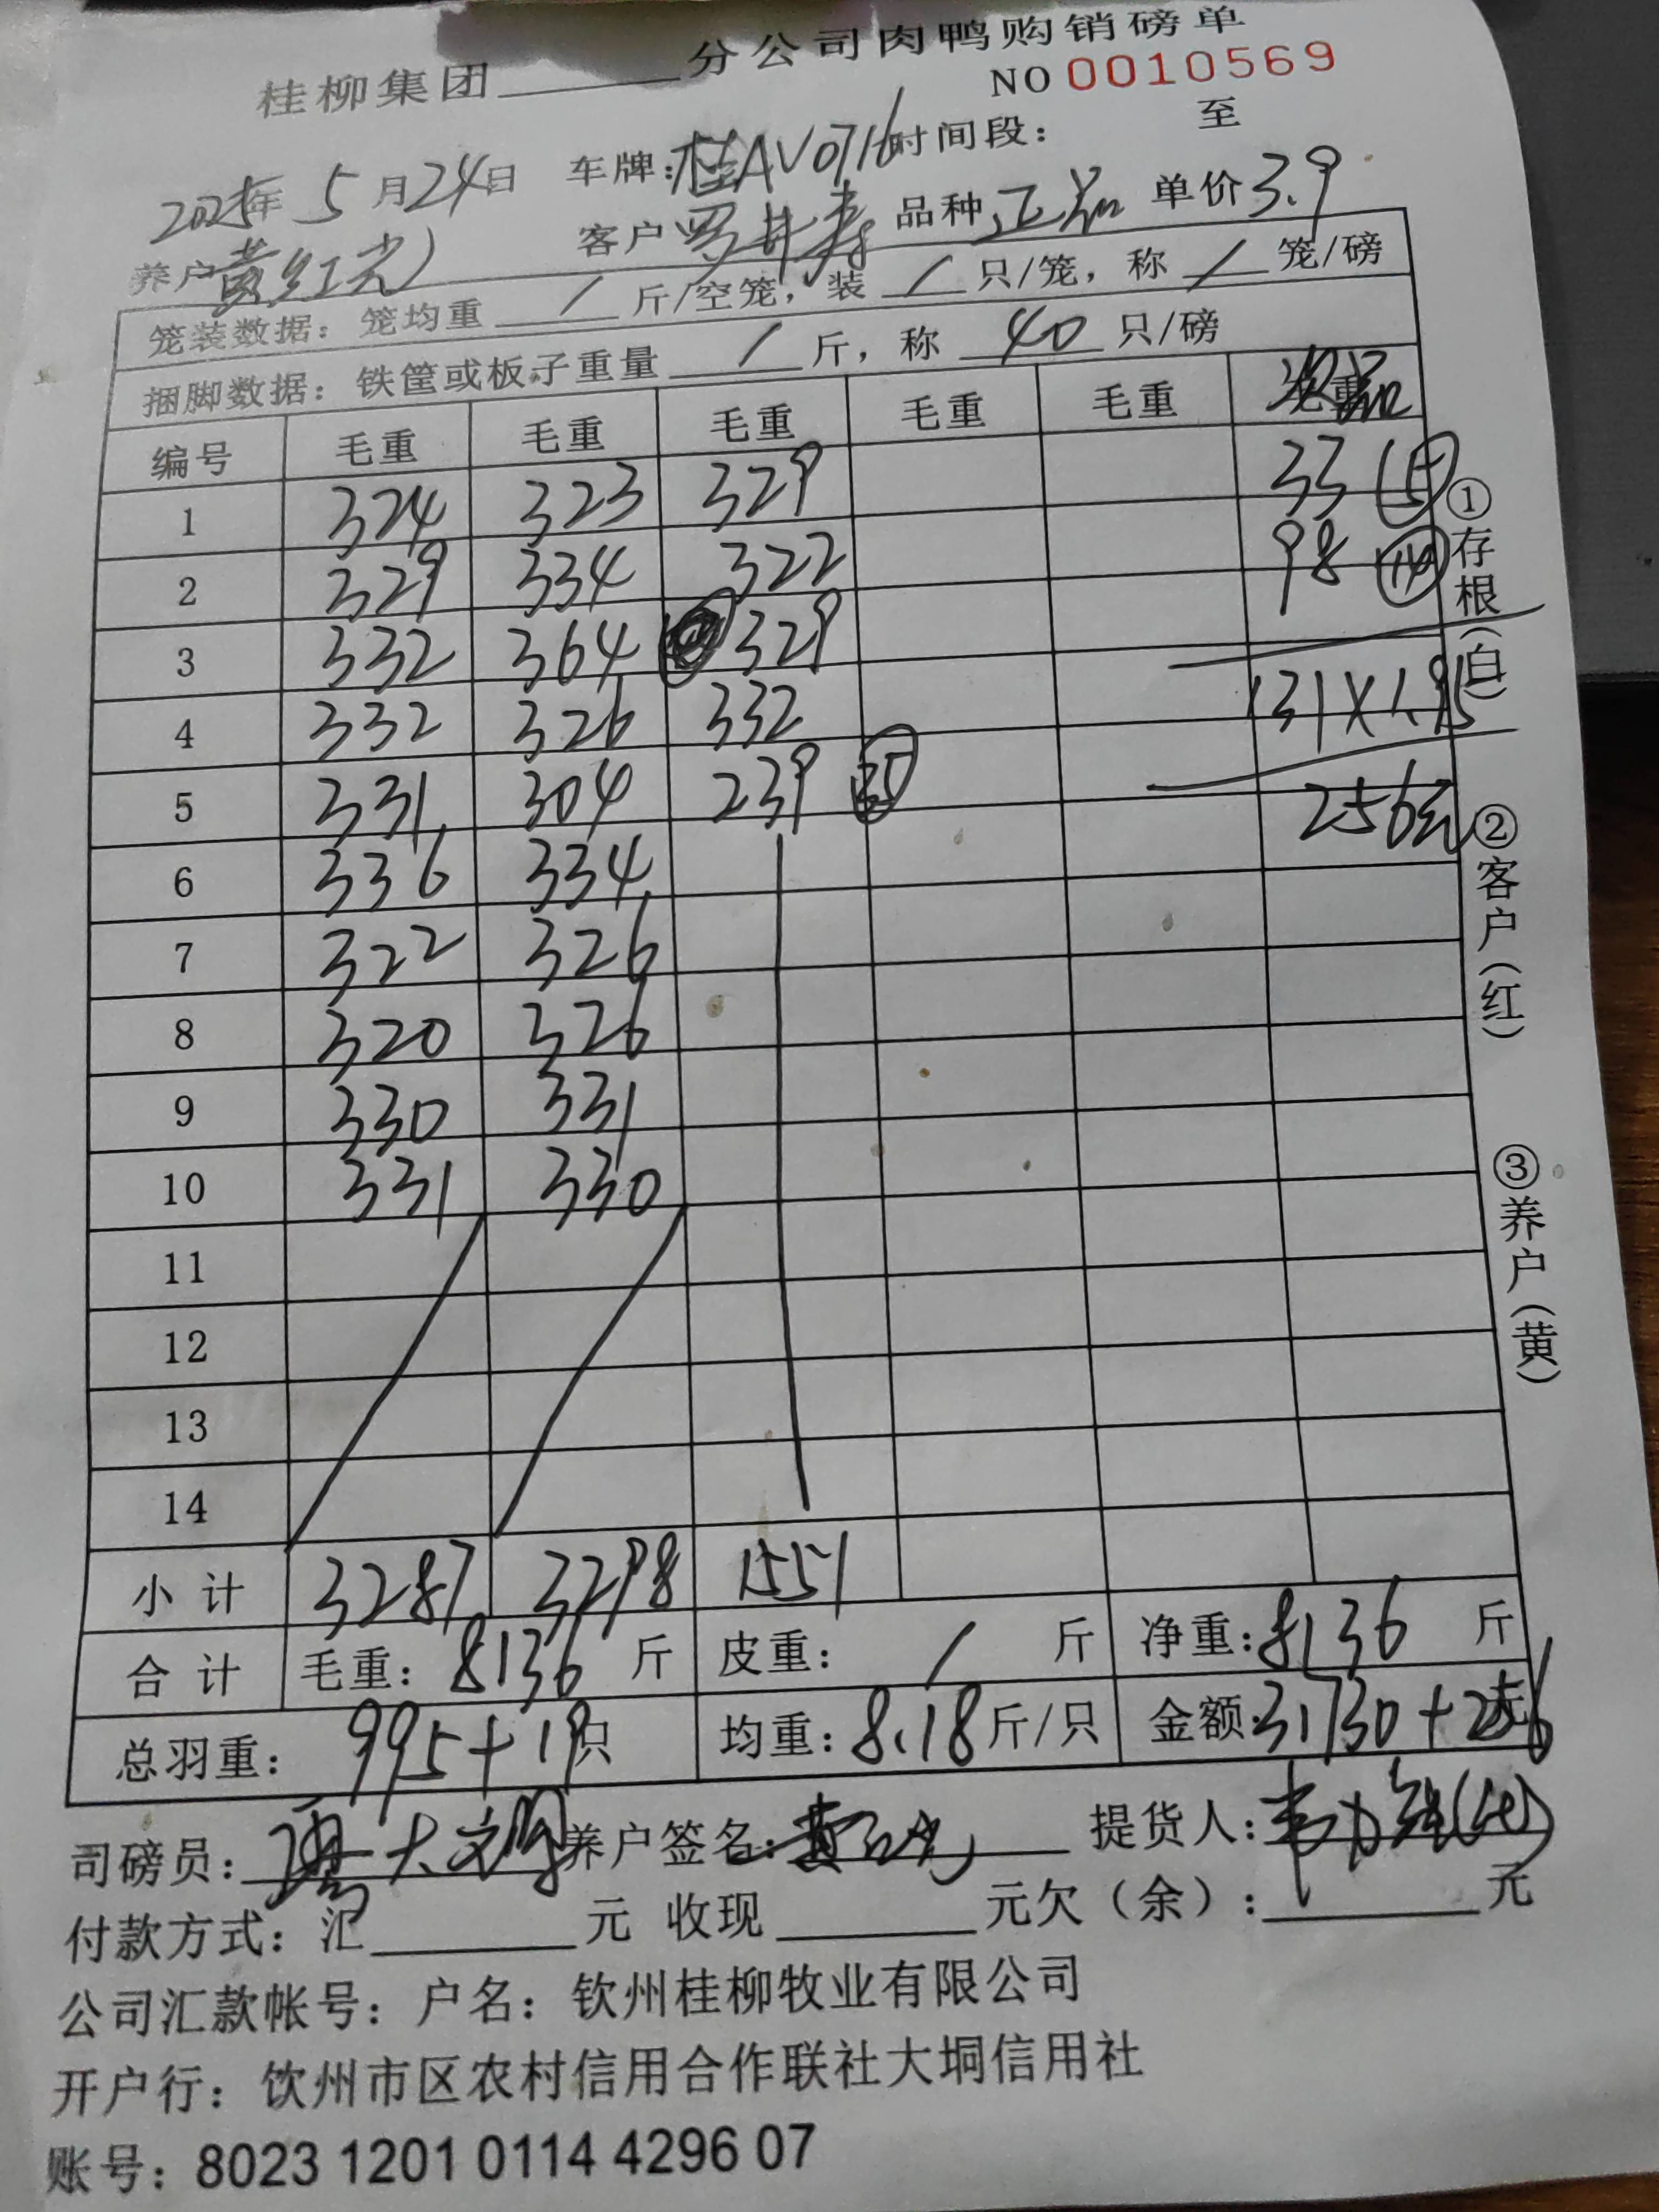 桂柳集团______分公司肉鸭购销磅单
NO 0010569
2025年 5月24日 车牌:桂AV0716 时间段: 至
养户黄红光 客户 品种 正品 单价3.9
笼装数据: 笼均重 / 斤/空笼, 装 / 只/笼, 称 / 笼/磅
捆脚数据: 铁筐或板子重量 / 斤, 称 40 只/磅
编号 毛重 毛重 毛重 毛重 毛重
1 324 323 329 33 (5)
2 329 334 322 98 (14)
3 332 364 329
4 332 326 332 131×1.95
5 331 304 239 (35) 256元
6 336 334
7 322 326
8 320 326
9 330 331
10 331 330
11
12
13
14
小计 3287 3298 1551
合计 毛重: 8136 斤 皮重: / 斤 净重: 8136 斤
总羽重: 995+19只 均重: 8.18斤/只 金额:31730+256元
司磅员: 养户签名:黄红光 提货人:
付款方式: 汇______元 收现______元欠(余):______元
公司汇款帐号: 户名: 钦州桂柳牧业有限公司
开户行: 饮州市区农村信用合作联社大垌信用社
账号: 8023 1201 0114 4296 07
①存根(白)
②客户(红)
③养户(黄)